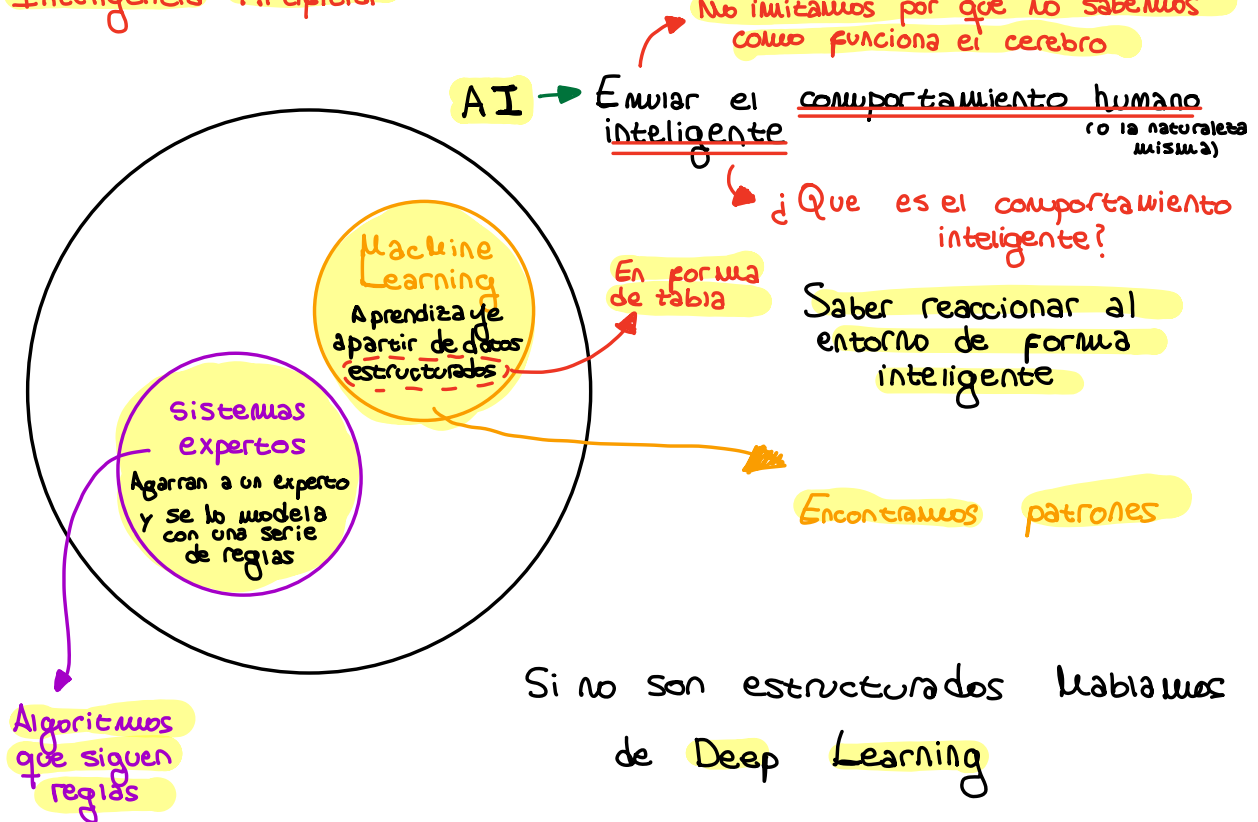 Inteligencia Artificial
No imitamos por que no sabemos
como funciona el cerebro
AI
Emular el comportamiento humano
inteligente
(o la naturaleza
misma)
¿Que es el comportamiento
inteligente?
Saber reaccionar al
entorno de forma
inteligente
Machine
Learning
Aprendizaje
apartir de datos
estructurados
En forma
de tabla
Encontramos patrones
Sistemas
expertos
Agarran a un experto
y se lo modela
con una serie
de reglas
Algoritmos
que siguen
reglas
Si no son estructurados hablamos
de Deep Learning